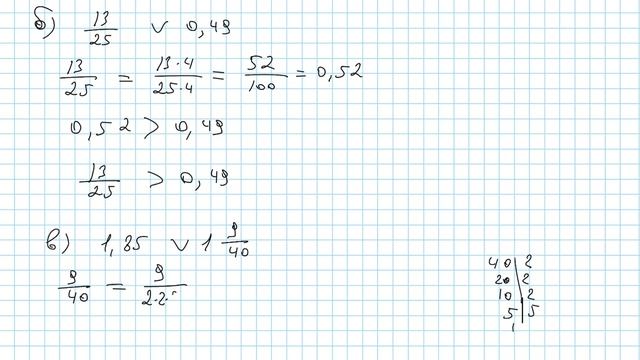 б) 13/25 ∨ 0,49
13/25 = 13·4/25·4 = 52/100 = 0,52
0,52 > 0,49
13/25 > 0,49
в) 1,85 ∨ 1 9/40
9/40 = 9/2·2·
40 | 2
20 | 2
10 | 2
5 | 5
1